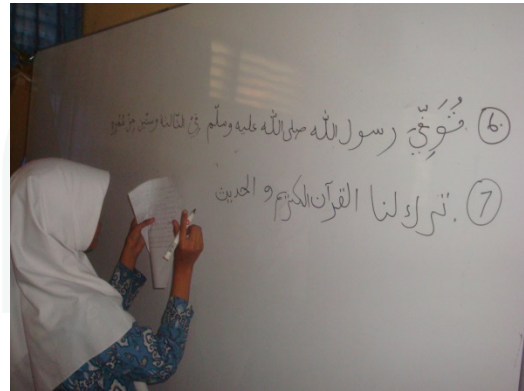 6. تُوَفِّيَ رسول الله صلى الله عليه وسلم في الثالثة وستين من
7. ترك لنا القرآن الكريم و الحديث